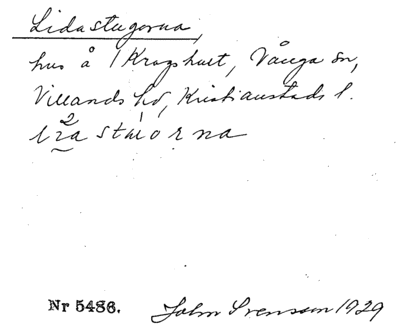 Lidastugorna,
hus å 1 Kragshult, Vånga sn,
Villands hd, Kristianstads l.
Nr 5486. John Svensson 1929